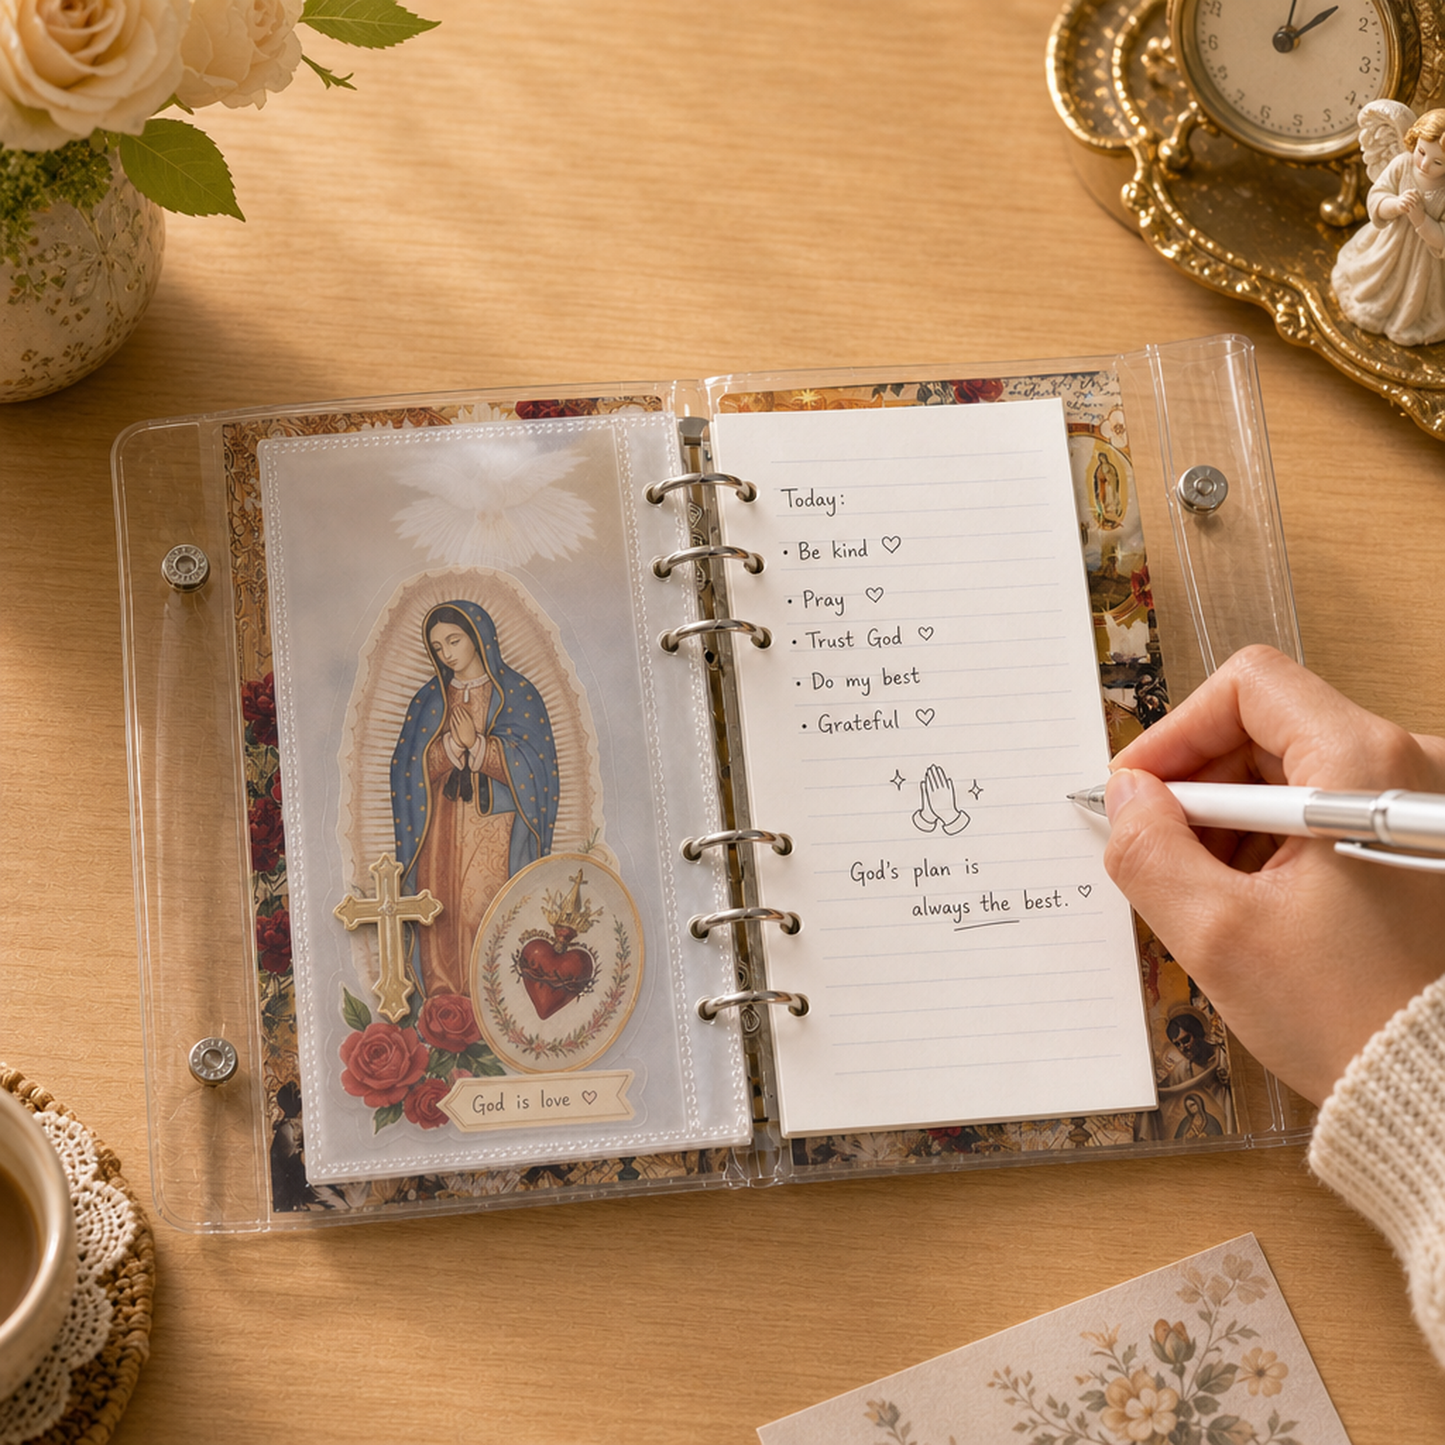 Today:
• Be kind ♡
• Pray ♡
• Trust God ♡
• Do my best
• Grateful ♡
God's plan is
always the best. ♡
God is love ♡